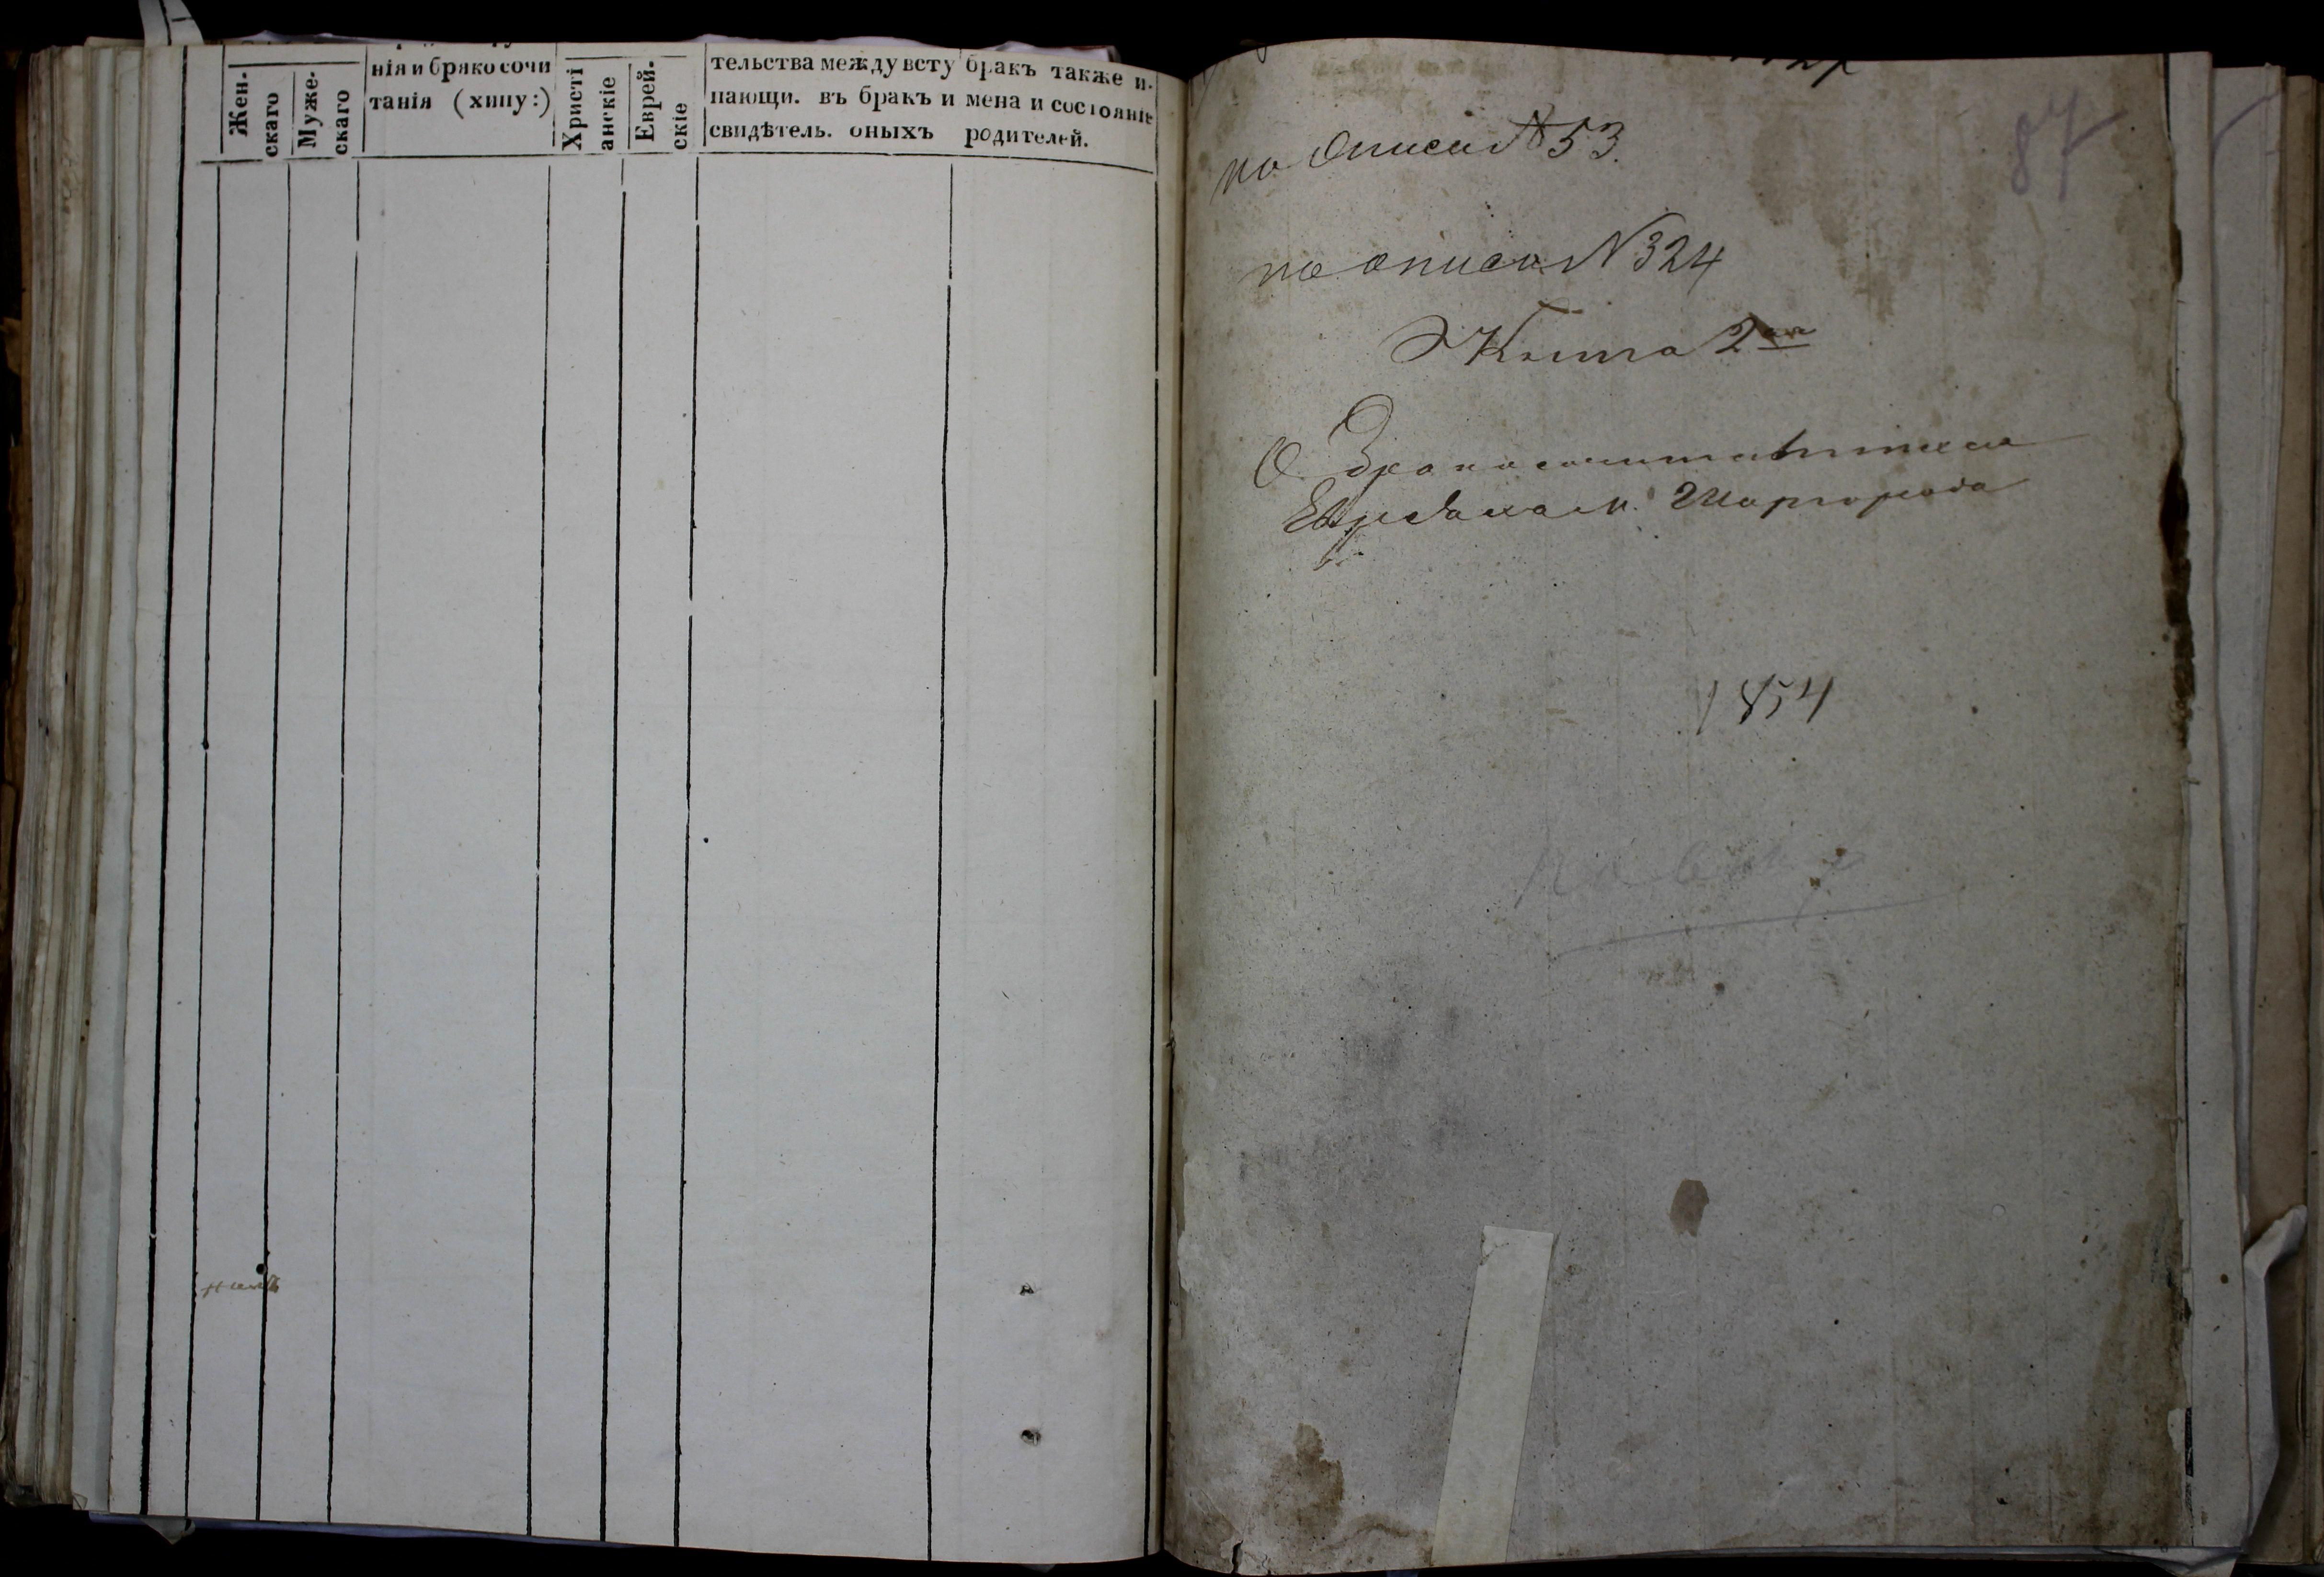 Жен-
скаго
Муже-
скаго
нія и бряко сочи
танія (хипу:)
Христі
анскіе
Еврей-
скіе
тельства между всту
пающи. въ бракъ и
свидѣтель. оныхъ
бракъ также и-
мена и состояніе
родителей.
87
по Описи № 53.
по описи N 324
Книга 2ая
О Бракосочитавшихся
Евреяхъ м. Шаргорода
1854